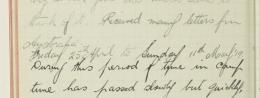 think of it. Received many letters from
Australia.
Friday 25th April to Sunday 11th May/19
During this period of time in Camp
time has passed slowly but quickly,